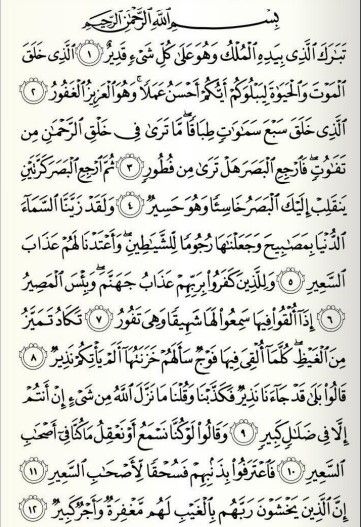 بِسْمِ اللَّهِ الرَّحْمَٰنِ الرَّحِيمِ
تَبَارَكَ الَّذِي بِيَدِهِ الْمُلْكُ وَهُوَ عَلَىٰ كُلِّ شَيْءٍ قَدِيرٌ ١ الَّذِي خَلَقَ
الْمَوْتَ وَالْحَيَوٰةَ لِيَبْلُوَكُمْ أَيُّكُمْ أَحْسَنُ عَمَلًا ۚ وَهُوَ الْعَزِيزُ الْغَفُورُ ٢
الَّذِي خَلَقَ سَبْعَ سَمَٰوَٰتٍ طِبَاقًا ۖ مَّا تَرَىٰ فِي خَلْقِ الرَّحْمَٰنِ مِن
تَفَٰوُتٍ ۖ فَارْجِعِ الْبَصَرَ هَلْ تَرَىٰ مِن فُطُورٍ ٣ ثُمَّ ارْجِعِ الْبَصَرَ كَرَّتَيْنِ
يَنقَلِبْ إِلَيْكَ الْبَصَرُ خَاسِئًا وَهُوَ حَسِيرٌ ٤ وَلَقَدْ زَيَّنَّا السَّمَاءَ
الدُّنْيَا بِمَصَٰبِيحَ وَجَعَلْنَٰهَا رُجُومًا لِّلشَّيَٰطِينِ ۖ وَأَعْتَدْنَا لَهُمْ عَذَابَ
السَّعِيرِ ٥ وَلِلَّذِينَ كَفَرُوا بِرَبِّهِمْ عَذَابُ جَهَنَّمَ ۖ وَبِئْسَ الْمَصِيرُ
٦ إِذَا أُلْقُوا فِيهَا سَمِعُوا لَهَا شَهِيقًا وَهِيَ تَفُورُ ٧ تَكَادُ تَمَيَّزُ
مِنَ الْغَيْظِ ۖ كُلَّمَا أُلْقِيَ فِيهَا فَوْجٌ سَأَلَهُمْ خَزَنَتُهَا أَلَمْ يَأْتِكُمْ نَذِيرٌ ٨
قَالُوا بَلَىٰ قَدْ جَاءَنَا نَذِيرٌ فَكَذَّبْنَا وَقُلْنَا مَا نَزَّلَ اللَّهُ مِن شَيْءٍ إِنْ أَنتُمْ
إِلَّا فِي ضَلَٰلٍ كَبِيرٍ ٩ وَقَالُوا لَوْ كُنَّا نَسْمَعُ أَوْ نَعْقِلُ مَا كُنَّا فِي أَصْحَٰبِ
السَّعِيرِ ١٠ فَاعْتَرَفُوا بِذَنبِهِمْ فَسُحْقًا لِّأَصْحَٰبِ السَّعِيرِ ١١
إِنَّ الَّذِينَ يَخْشَوْنَ رَبَّهُم بِالْغَيْبِ لَهُم مَّغْفِرَةٌ وَأَجْرٌ كَبِيرٌ ١٢